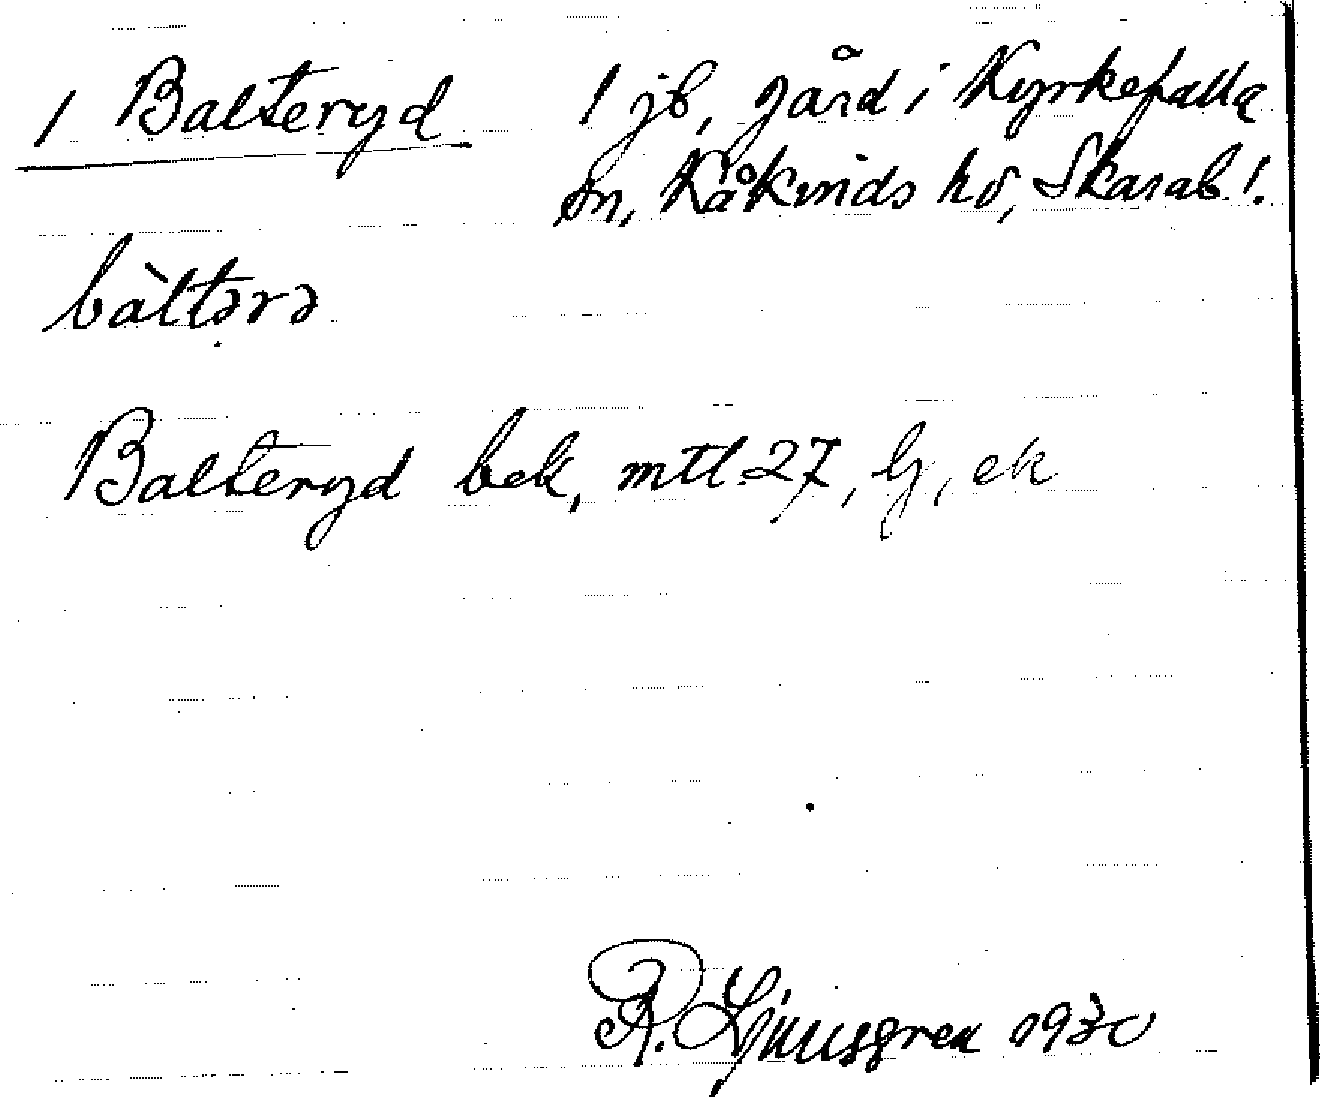 1 Balteryd 1 jb, gård i Kyrkefalla
sn, Kåkinds hd, Skarab l.
bàltərə
Balteryd bek, mtl 27, Lj, ek
R. Ljunggren 1930